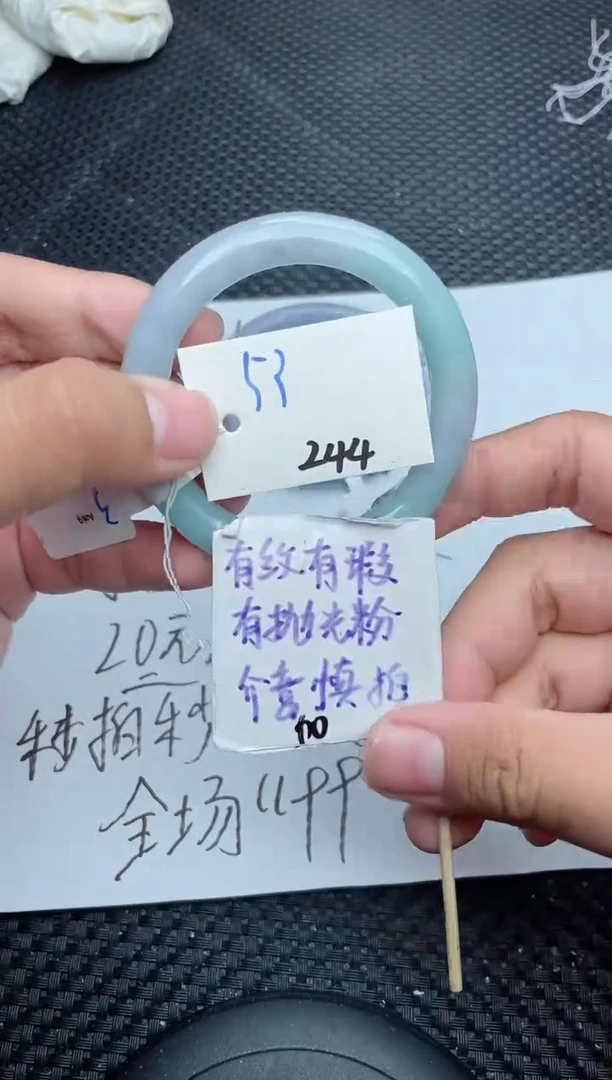 53
244
有纹有瑕
有抛光粉
介意慎拍
20元
秒拍秒
全场“